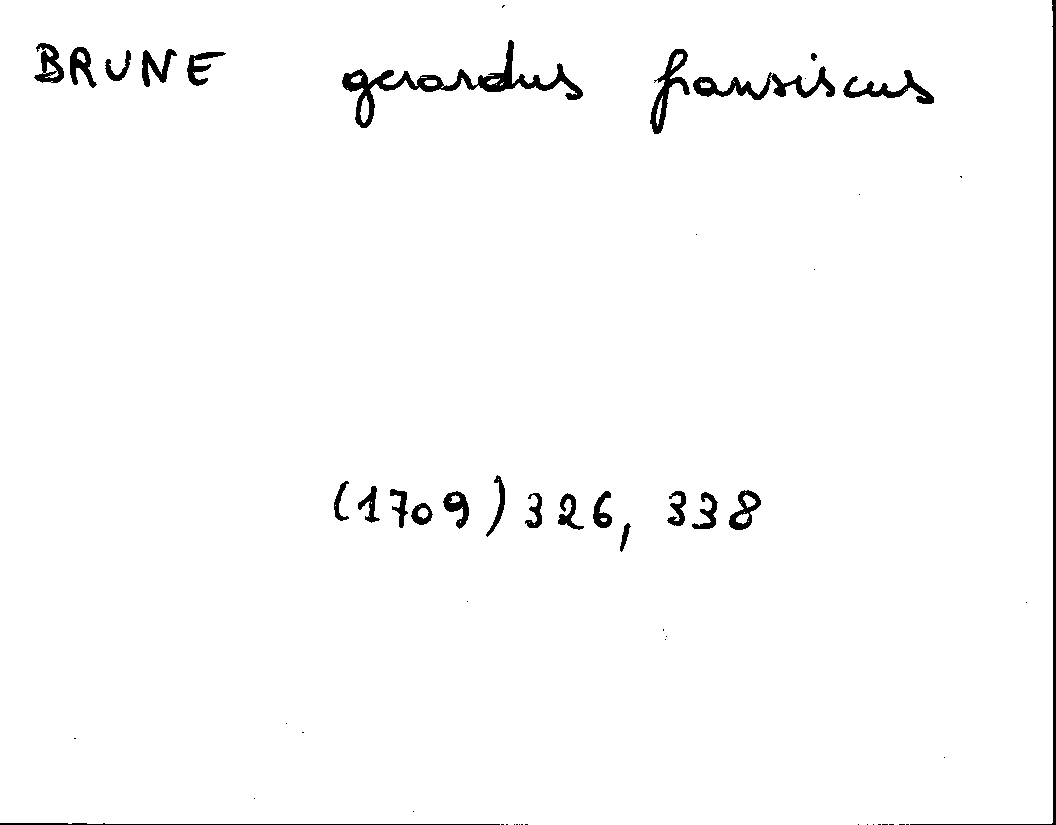 BRUNE gerardus fransiscus
(1709) 326, 338